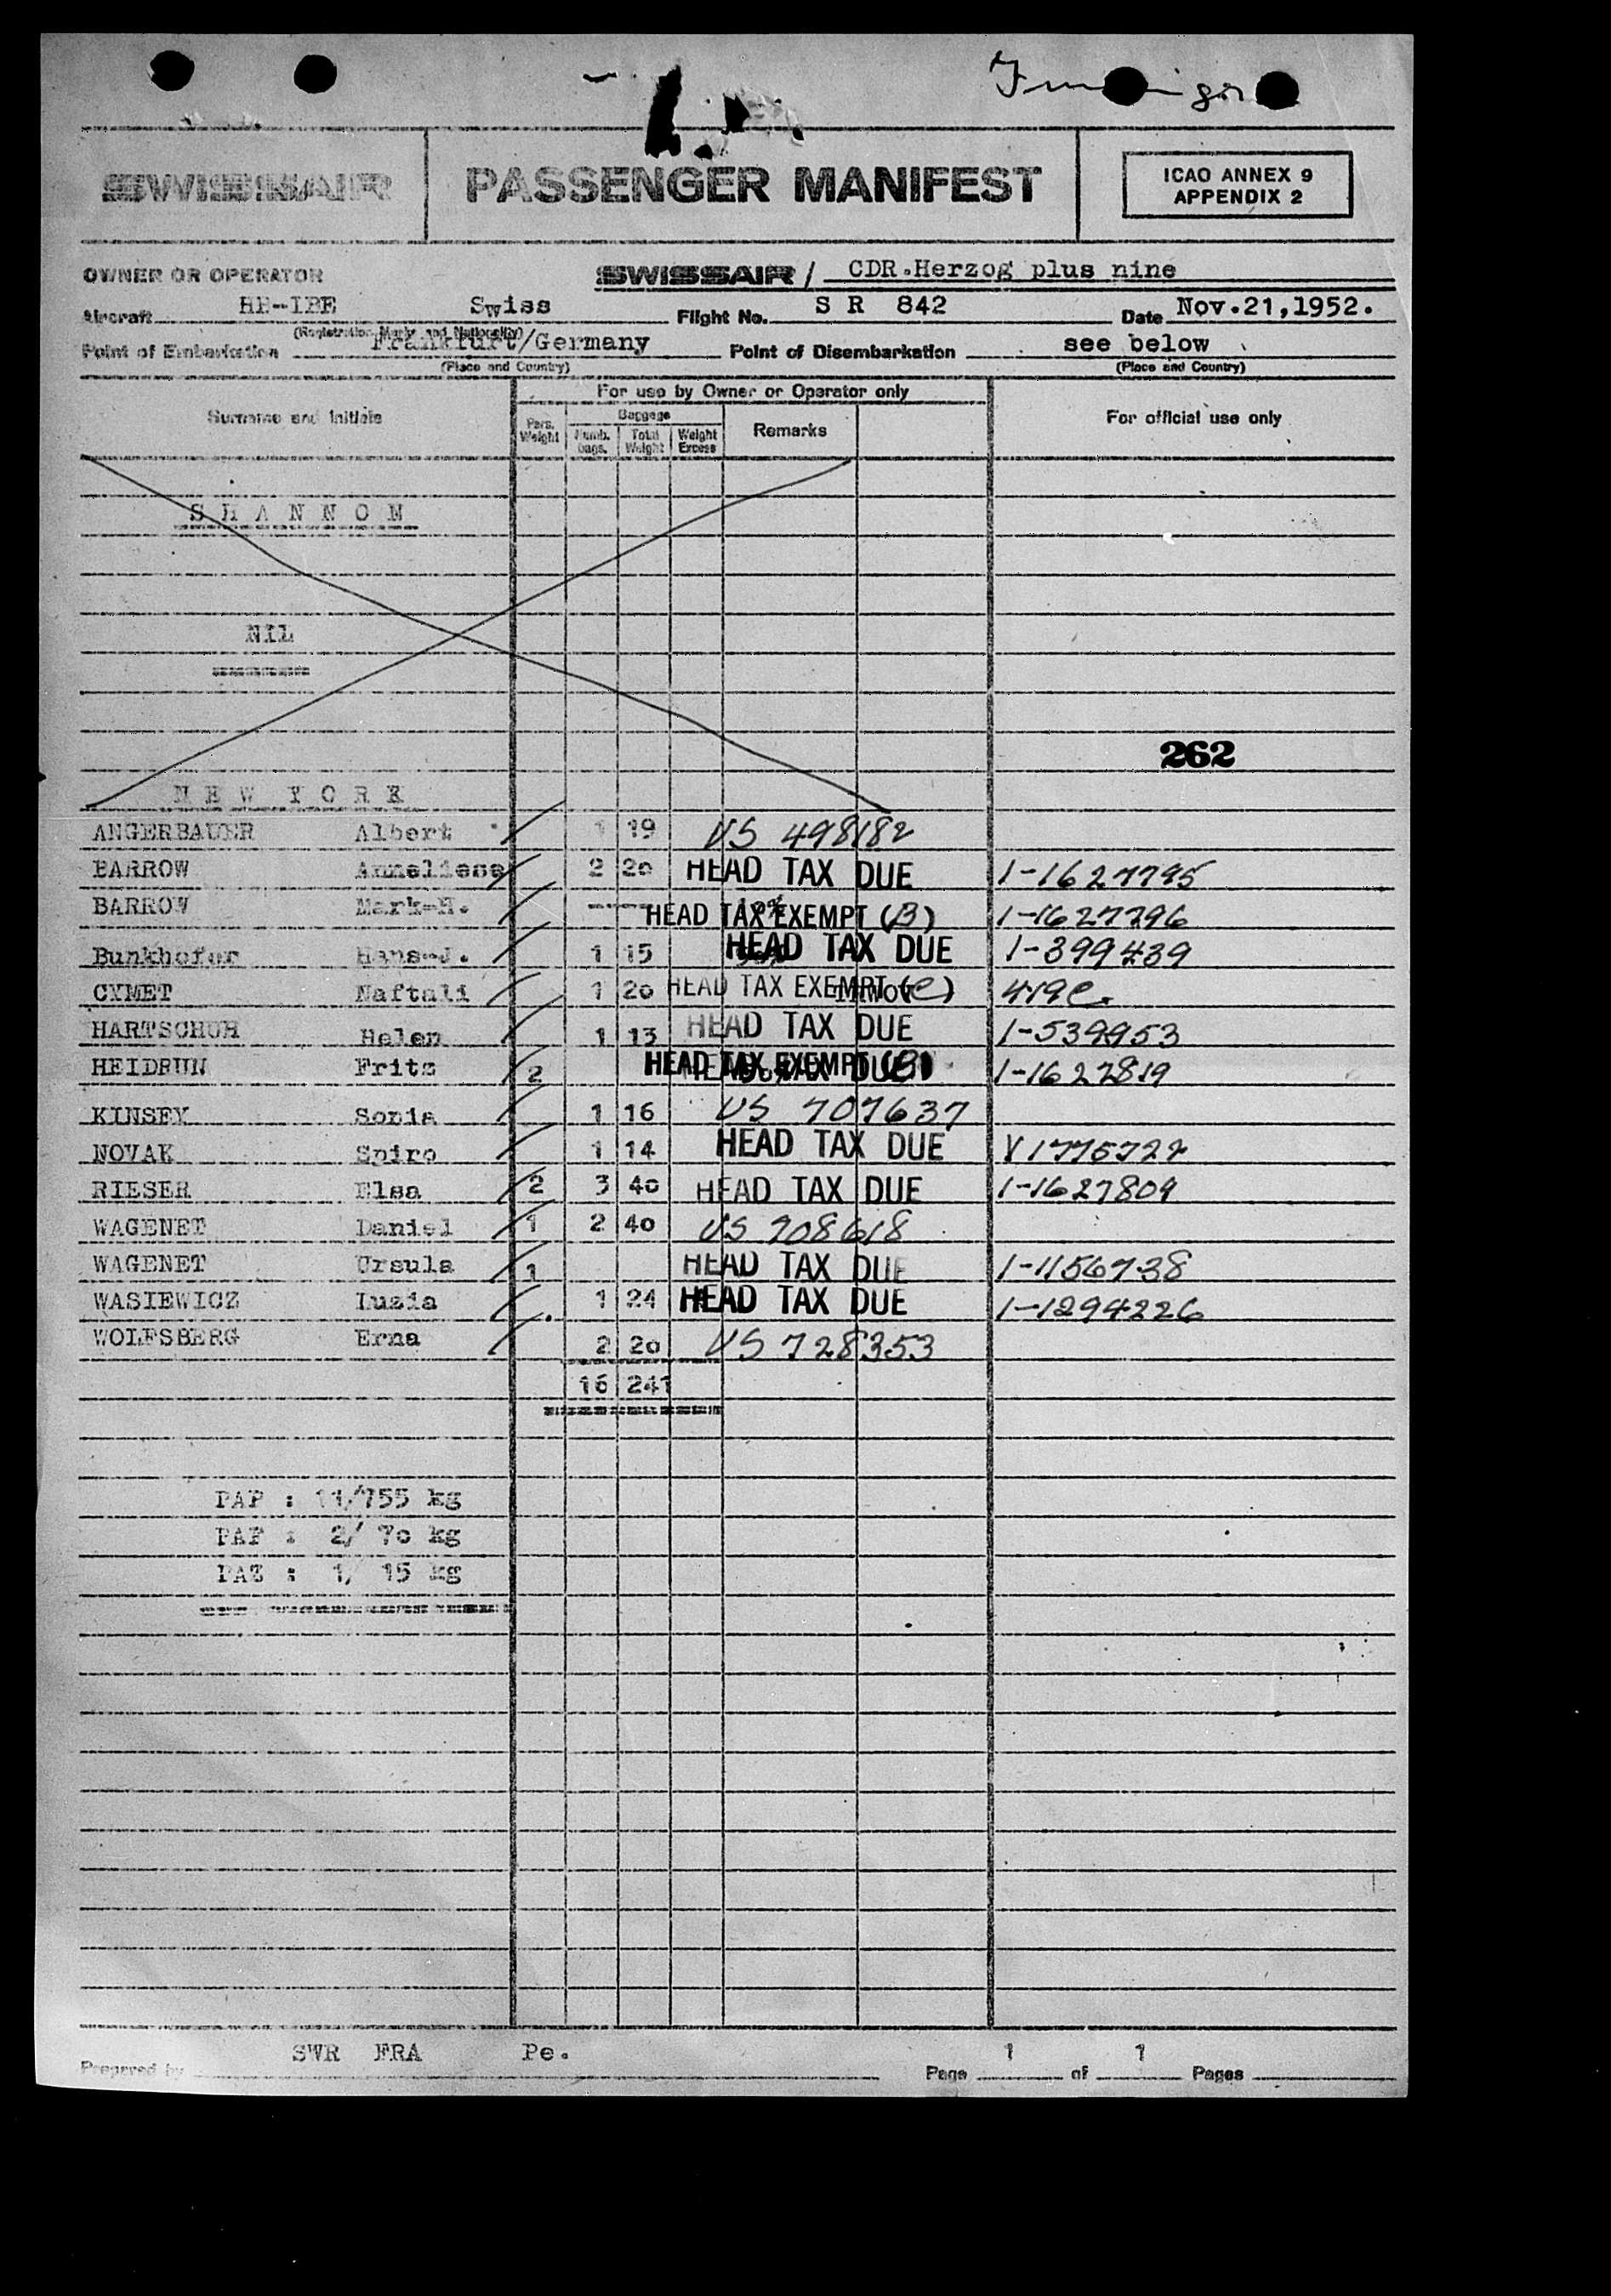 SWISSAIR PASSENGER MANIFEST ICAO ANNEX 9
APPENDIX 2
OWNER OR OPERATOR SWISSAIR / CDR.Herzog plus nine
Aircraft HB-IBE Swiss Flight No. S R 842 Date Nov.21,1952.
(Registration Marks and Nationality)
Point of Embarkation Frankfurt/Germany Point of Disembarkation see below
(Place and Country) (Place and Country)
For use by Owner or Operator only
Surname and Initials Pers. Weight Baggage Numb. bags. Total Weight Weight Excess Remarks For official use only
S H A N N O N
NIL
262
N E W Y O R K
ANGERBAUER Albert 1 19 US 498182
BARROW Anneliese 2 20 HEAD TAX DUE 1-1627795
BARROW Mark-H. HEAD TAX EXEMPT (B) 1-1627796
Bunkhofer Hans-J. 1 15 HEAD TAX DUE 1-399439
CYMET Naftali 1 20 HEAD TAX EXEMPT (C) 419C
HARTSCHUH Helen 1 13 HEAD TAX DUE 1-539953
HEIDRUN Fritz 2 HEAD TAX EXEMPT (B) 1-1627819
KINSEY Sonia 1 16 US 707637
NOVAK Spiro 1 14 HEAD TAX DUE V1775722
RIESER Elsa 2 3 40 HEAD TAX DUE 1-1627809
WAGENET Daniel 1 2 40 US 908618
WAGENET Ursula 1 HEAD TAX DUE 1-1156738
WASIEWICZ Luzia 1 24 HEAD TAX DUE 1-1294226
WOLFSBERG Erna 2 20 US 728353
16 241
PAP : 11/755 kg
PAF : 2/ 70 kg
PAZ : 1/ 15 kg
Prepared by SWR FRA Pe. Page 1 of 1 Pages